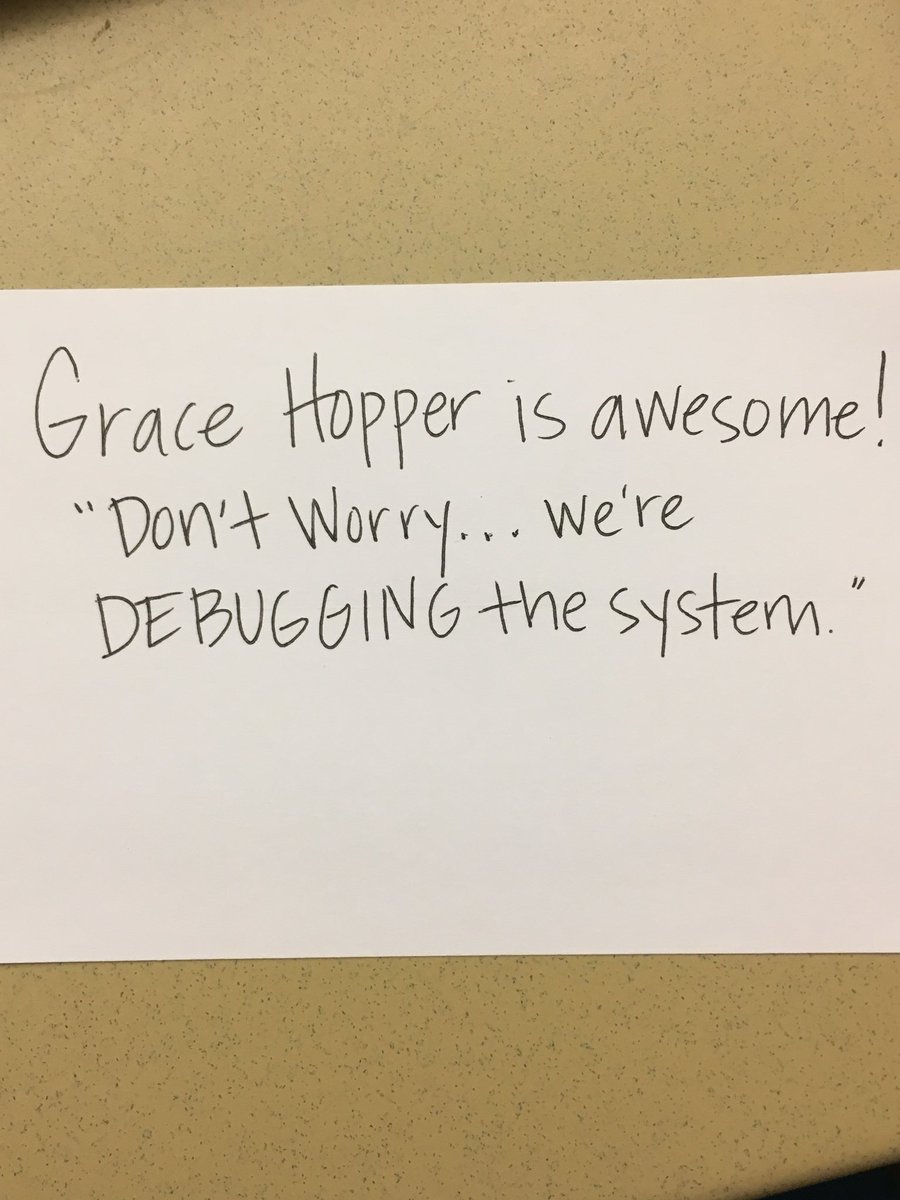 Grace Hopper is awesome!
"Don't Worry... we're
DEBUGGING the system."